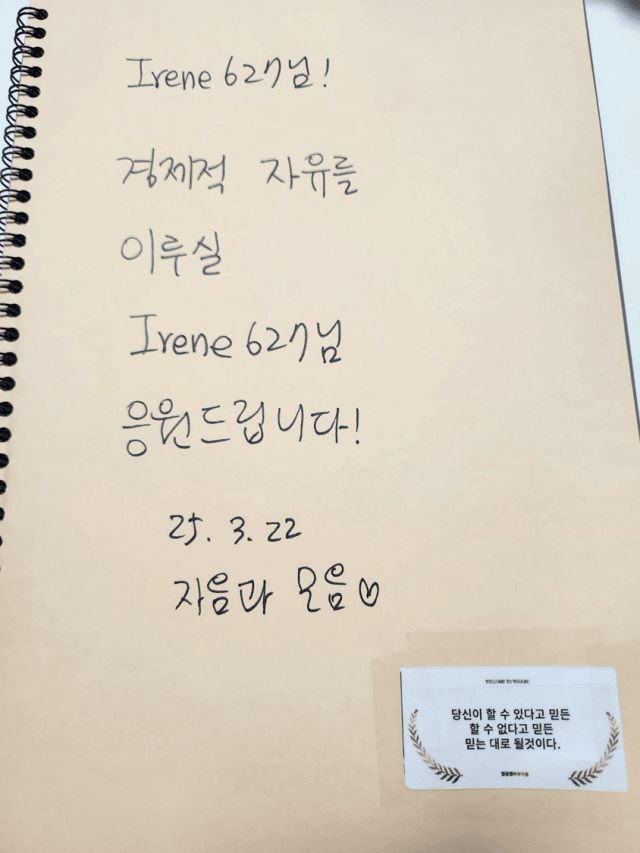 Irene 627님!
경제적 자유를
이루실
Irene 627님
응원드립니다!
25. 3. 22
자음과 모음♡
WELCOME TO
당신이 할 수 있다고 믿든
할 수 없다고 믿든
믿는 대로 될것이다.